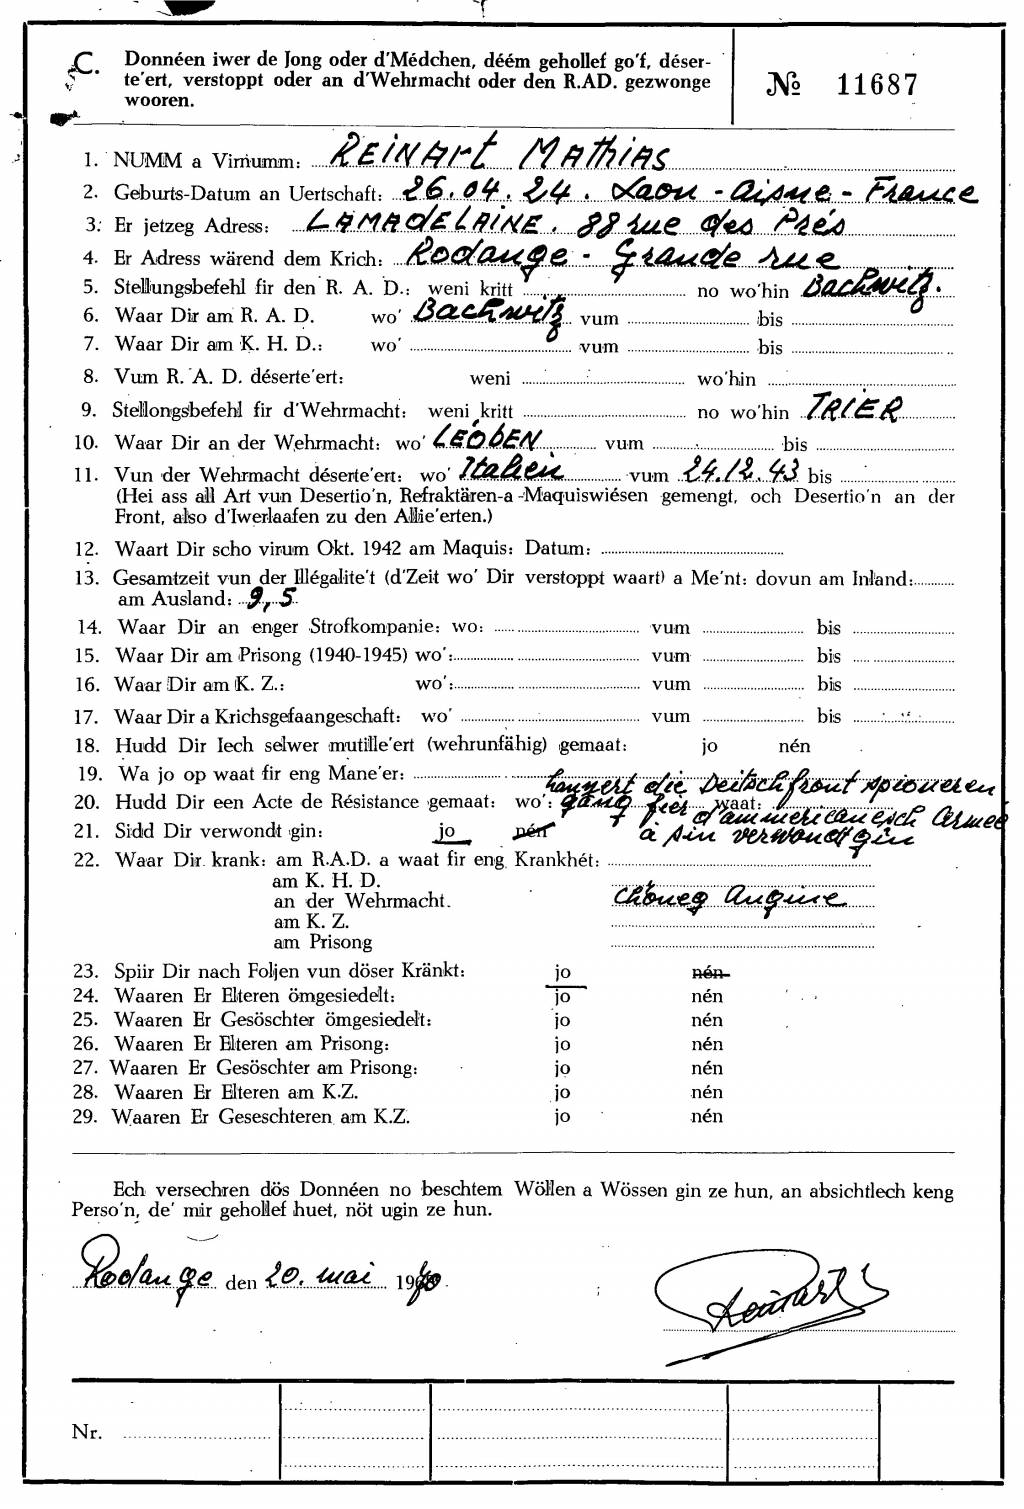 C. Donnéen iwer de Jong oder d'Médchen, déém gehollef go'f, déser-
te'ert, verstoppt oder an d'Wehrmacht oder den R.AD. gezwonge
wooren.
№ 11687
1. NUMM a Virnumm: REINART MATHIAS
2. Geburts-Datum an Uertschaft: 26.04.24. Laon - Aisne - France
3. Er jetzeg Adress: LAMADELAINE. 88 rue des Prés
4. Er Adress wärend dem Krich: Rodange - Grande rue
5. Stellungsbefehl fir den R. A. D.: weni kritt no wo'hin Bachwitz.
6. Waar Dir am R. A. D. wo' Bachwitz vum bis
7. Waar Dir am K. H. D.: wo' vum bis
8. Vum R. A. D. déserte'ert: weni wo'hin
9. Stellongsbefehl fir d'Wehrmacht: weni kritt no wo'hin TRIER
10. Waar Dir an der Wehrmacht: wo' LEOBEN vum bis
11. Vun der Wehrmacht déserte'ert: wo' Italien vum 24.12.43 bis
(Hei ass all Art vun Desertio'n, Refraktären-a-Maquiswiésen gemengt, och Desertio'n an der
Front, also d'Iwerlaafen zu den Allie'erten.)
12. Waart Dir scho virum Okt. 1942 am Maquis: Datum:
13. Gesamtzeit vun der Illégalite't (d'Zeit wo' Dir verstoppt waart) a Me'nt: dovun am Inland:
am Ausland: 9,5
14. Waar Dir an enger Strofkompanie: wo: vum bis
15. Waar Dir am Prisong (1940-1945) wo': vum bis
16. Waar Dir am K. Z.: wo': vum bis
17. Waar Dir a Krichsgefaangeschaft: wo' vum bis
18. Hudd Dir Iech selwer mutille'ert (wehrunfähig) gemaat: jo nén
19. Wa jo op waat fir eng Mane'er:
hannert die Deitsch front spioneren
20. Hudd Dir een Acte de Résistance gemaat: wo': gang fier waat:
d'ammericanesch Armee
21. Sidd Dir verwondt gin: jo nén à sin verwondt gin
22. Waar Dir krank: am R.A.D. a waat fir eng Krankhét:
am K. H. D.
an der Wehrmacht. Angine
am K. Z.
am Prisong
23. Spiir Dir nach Foljen vun döser Kränkt: jo nén
24. Waaren Er Elteren ömgesiedelt: jo nén
25. Waaren Er Gesöschter ömgesiedelt: jo nén
26. Waaren Er Elteren am Prisong: jo nén
27. Waaren Er Gesöschter am Prisong: jo nén
28. Waaren Er Elteren am K.Z. jo nén
29. Waaren Er Geseschteren am K.Z. jo nén
Ech versechren dös Donnéen no beschtem Wöllen a Wössen gin ze hun, an absichtlech keng
Perso'n, de' mir gehollef huet, nöt ugin ze hun.
Rodange den 20. mai 1970
Reinart
Nr.